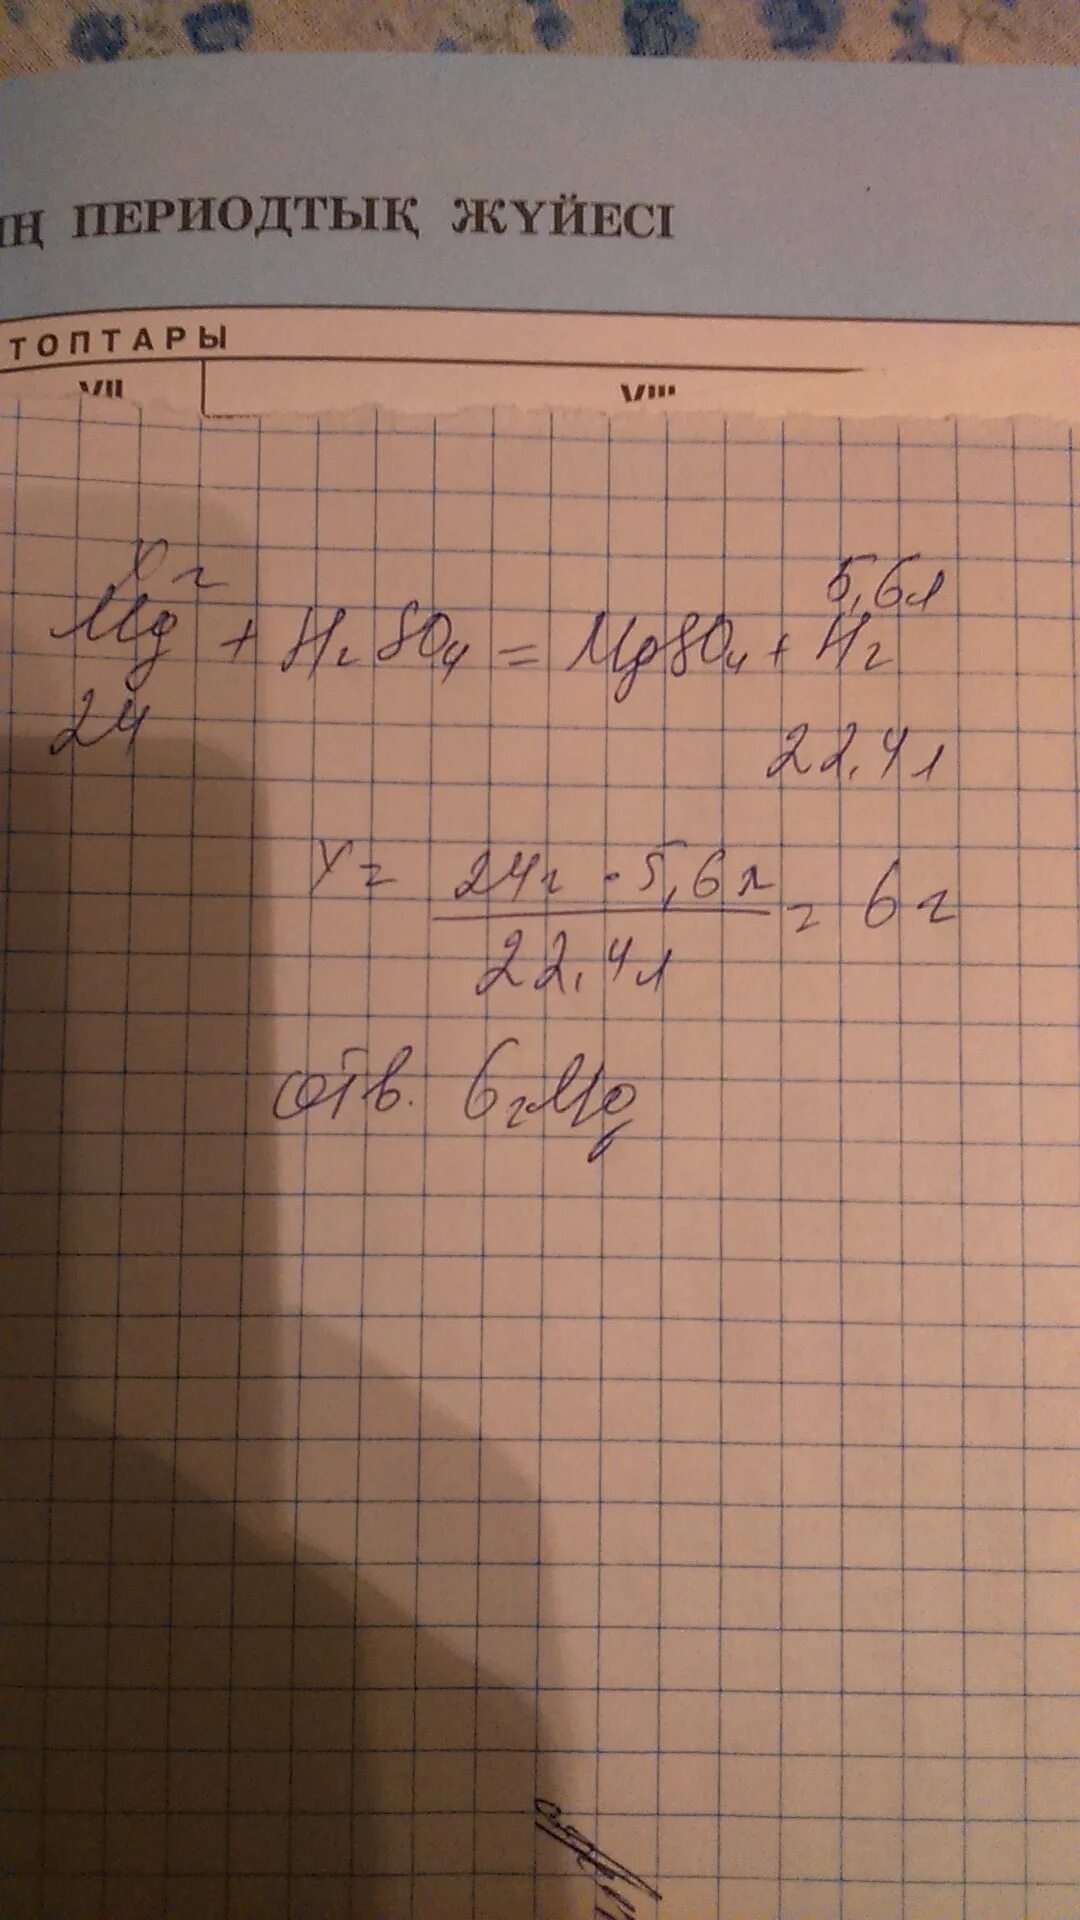 ІҢ ПЕРИОДТЫҚ ЖҮЙЕСІ
ТОПТАРЫ
VII VIII
X г 5,6л
Mg + H₂SO₄ = MgSO₄ + H₂
24 22,4л
X = 24г · 5,6л / 22,4л = 6г
отв. 6г Mg